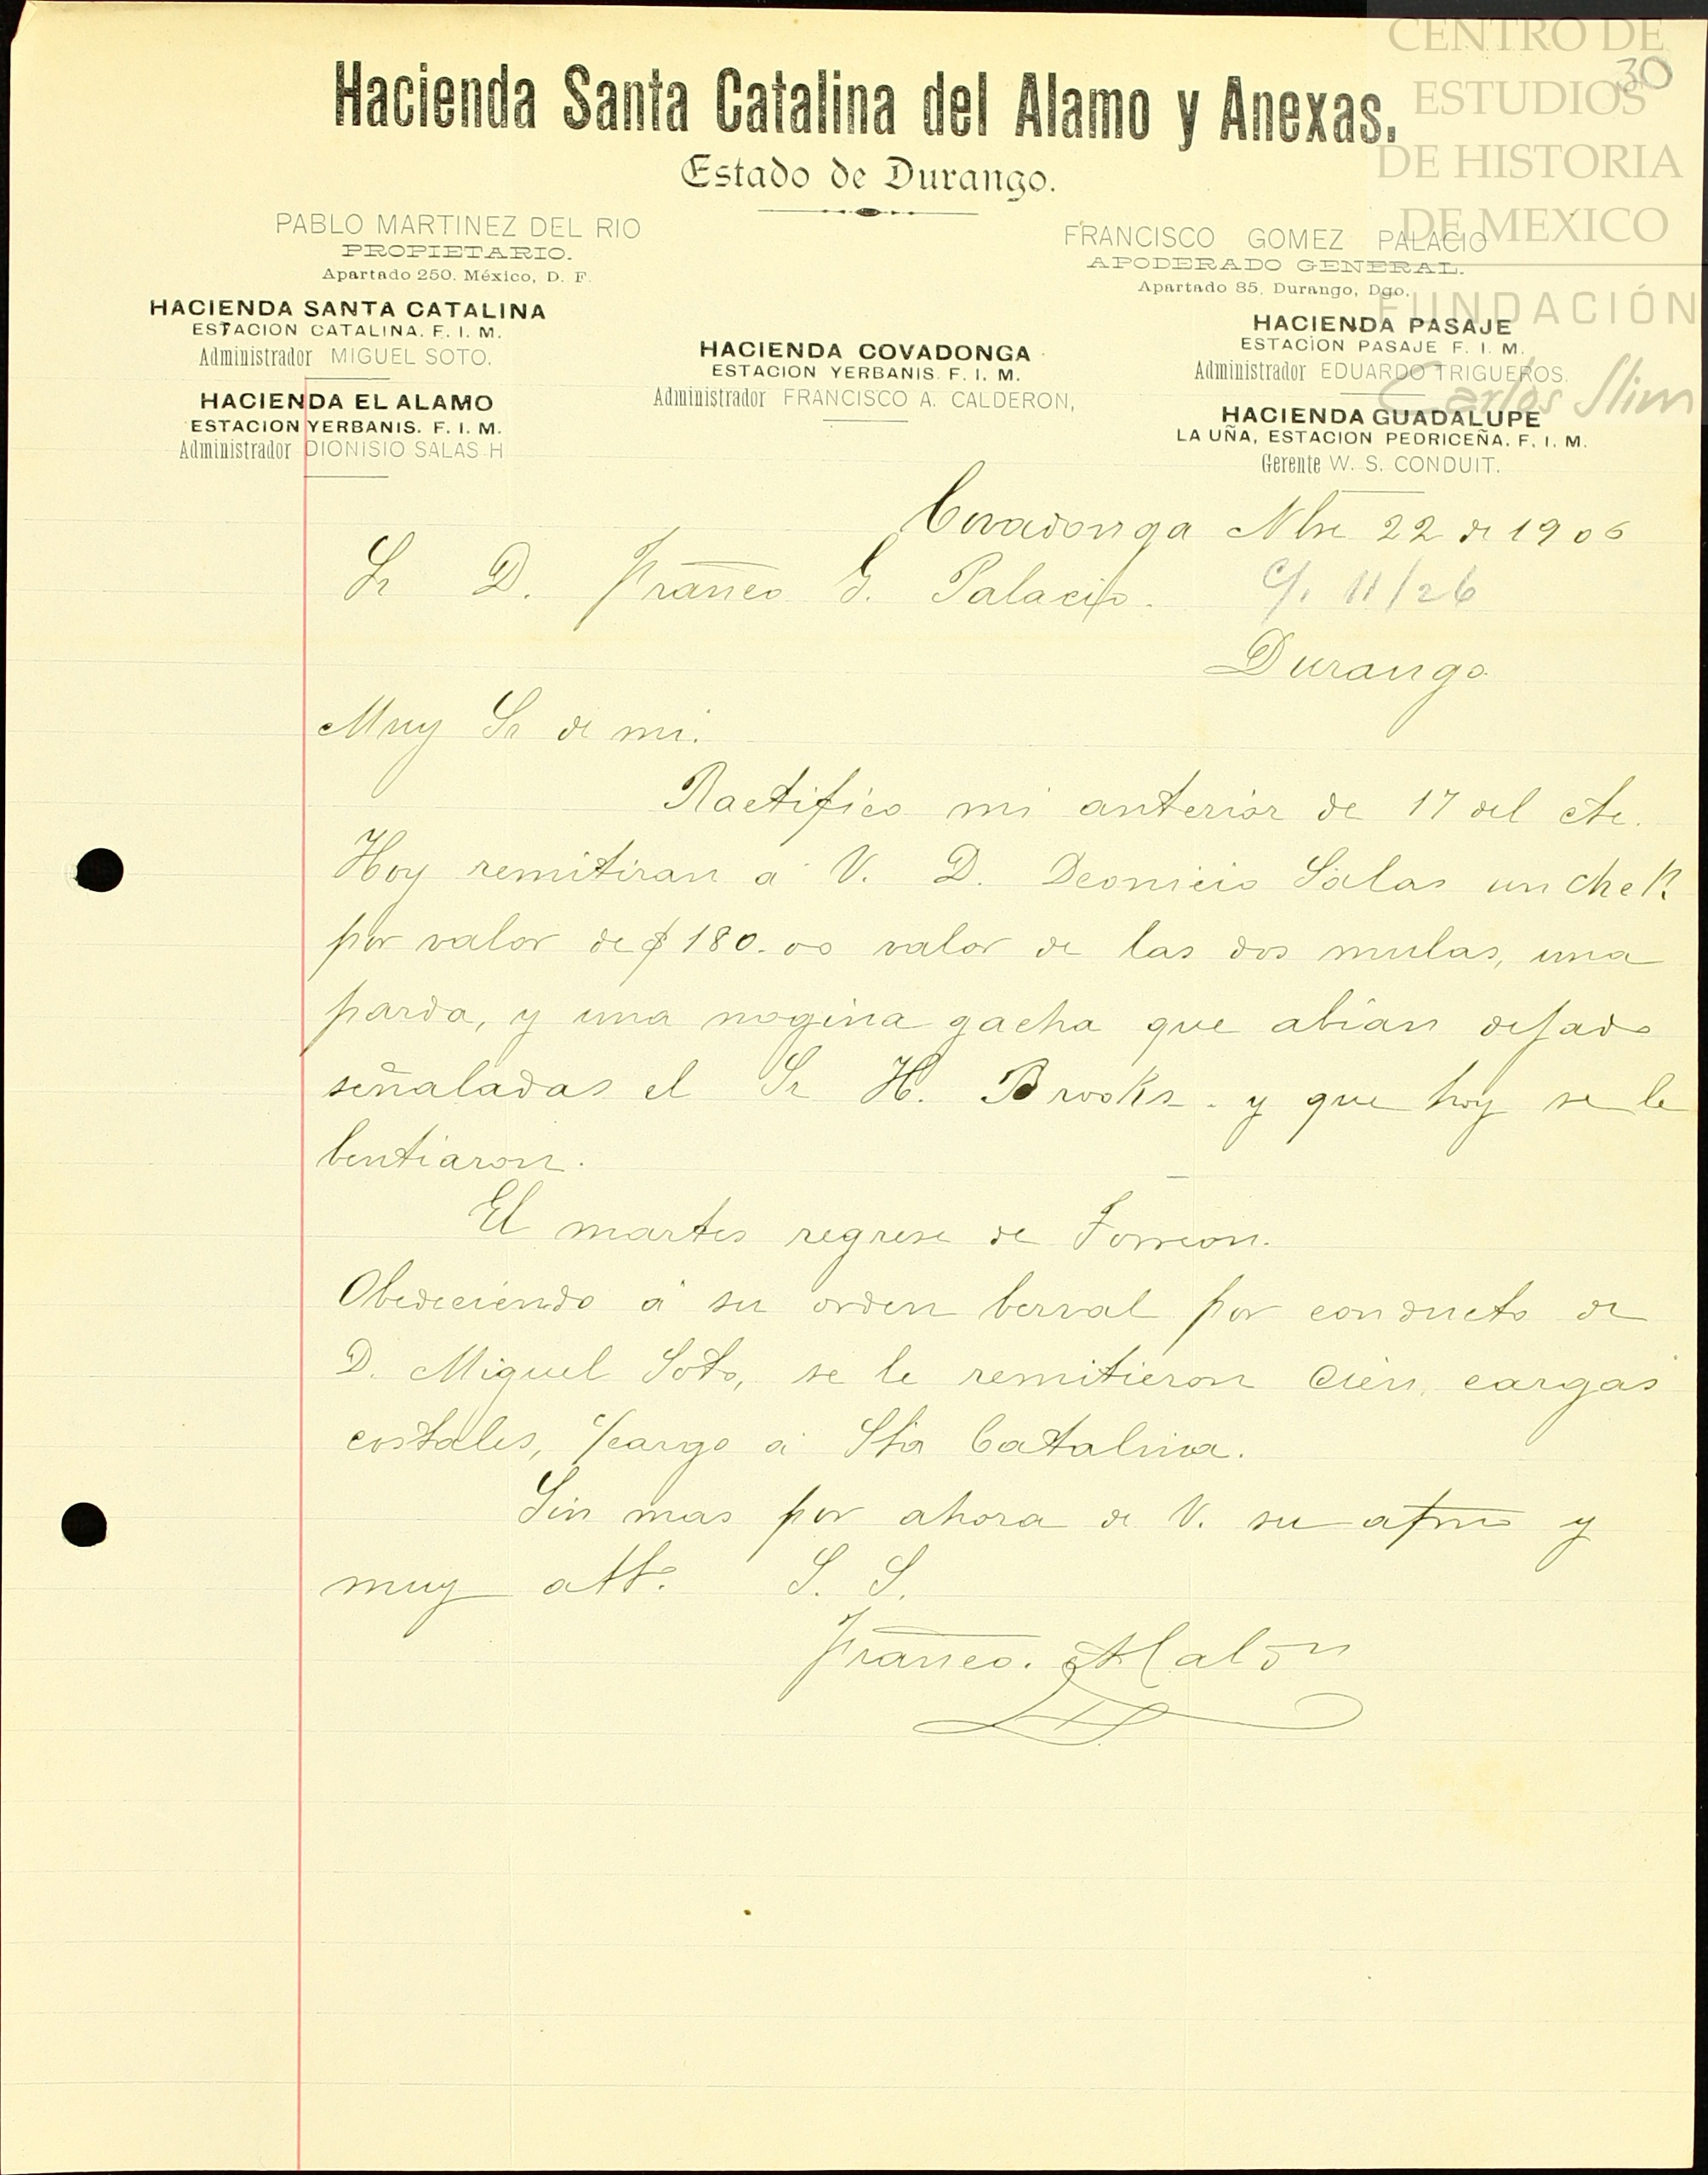 CENTRO DE
ESTUDIOS
DE HISTORIA
DE MEXICO
FUNDACIÓN
Carlos Slim
30
Hacienda Santa Catalina del Alamo y Anexas.
Estado de Durango.
PABLO MARTINEZ DEL RIO
PROPIETARIO.
Apartado 250. México, D. F.
FRANCISCO GOMEZ PALACIO
APODERADO GENERAL.
Apartado 85, Durango, Dgo.
HACIENDA SANTA CATALINA
ESTACION CATALINA. F. I. M.
Administrador MIGUEL SOTO.
HACIENDA EL ALAMO
ESTACION YERBANIS. F. I. M.
Administrador DIONISIO SALAS H
HACIENDA COVADONGA
ESTACION YERBANIS. F. I. M.
Administrador FRANCISCO A. CALDERON,
HACIENDA PASAJE
ESTACION PASAJE F. I. M.
Administrador EDUARDO TRIGUEROS.
HACIENDA GUADALUPE
LA UÑA, ESTACION PEDRICEÑA. F. I. M.
Gerente W. S. CONDUIT.
Covadonga Nbre 22 de 1906
Sr D. Franco G. Palacio. C/. 11/26
Durango.
Muy Sr de mi.
Ractifico mi anterior de 17 del cte.
Hoy remitiran a V. D. Deonicio Salas un chek
por valor de $180.00 valor de las dos mulas, una
parda, y una nogina gacha que abían dejado
señaladas el Sr H. Brooks. y que hoy se le
bentiaron.
El martes regrese de Torreon.
Obedeciendo á su orden berval por conducto de
D. Miguel Soto, se le remitieron cien cargas
costales, c/cargo a Sta Catalina.
Sin mas por ahora de V. su afmo y
muy atto. S. S.
Franco. Alalón